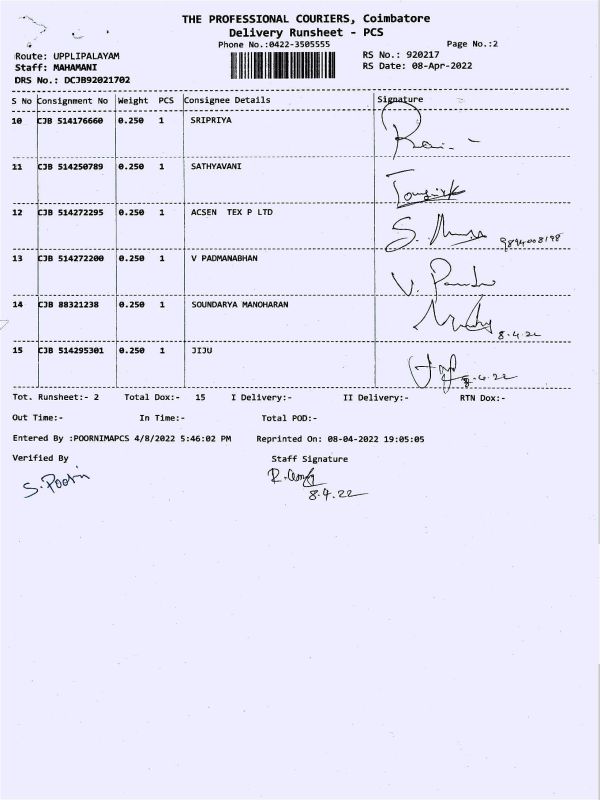 THE PROFESSIONAL COURIERS, Coimbatore
Delivery Runsheet - PCS
Phone No.:0422-3505555 Page No.:2
Route: UPPLIPALAYAM RS No.: 920217
Staff: MAHAMANI RS Date: 08-Apr-2022
DRS No.: DCJB92021702
S No Consignment No Weight PCS Consignee Details Signature
10 CJB 514176660 0.250 1 SRIPRIYA
11 CJB 514250789 0.250 1 SATHYAVANI
12 CJB 514272295 0.250 1 ACSEN TEX P LTD
9894008198
13 CJB 514272200 0.250 1 V PADMANABHAN
14 CJB 88321238 0.250 1 SOUNDARYA MANOHARAN
8.4.22
15 CJB 514295301 0.250 1 JIJU
8.4.22
Tot. Runsheet:- 2 Total Dox:- 15 I Delivery:- II Delivery:- RTN Dox:-
Out Time:- In Time:- Total POD:-
Entered By :POORNIMAPCS 4/8/2022 5:46:02 PM Reprinted On: 08-04-2022 19:05:05
Verified By Staff Signature
8.4.22